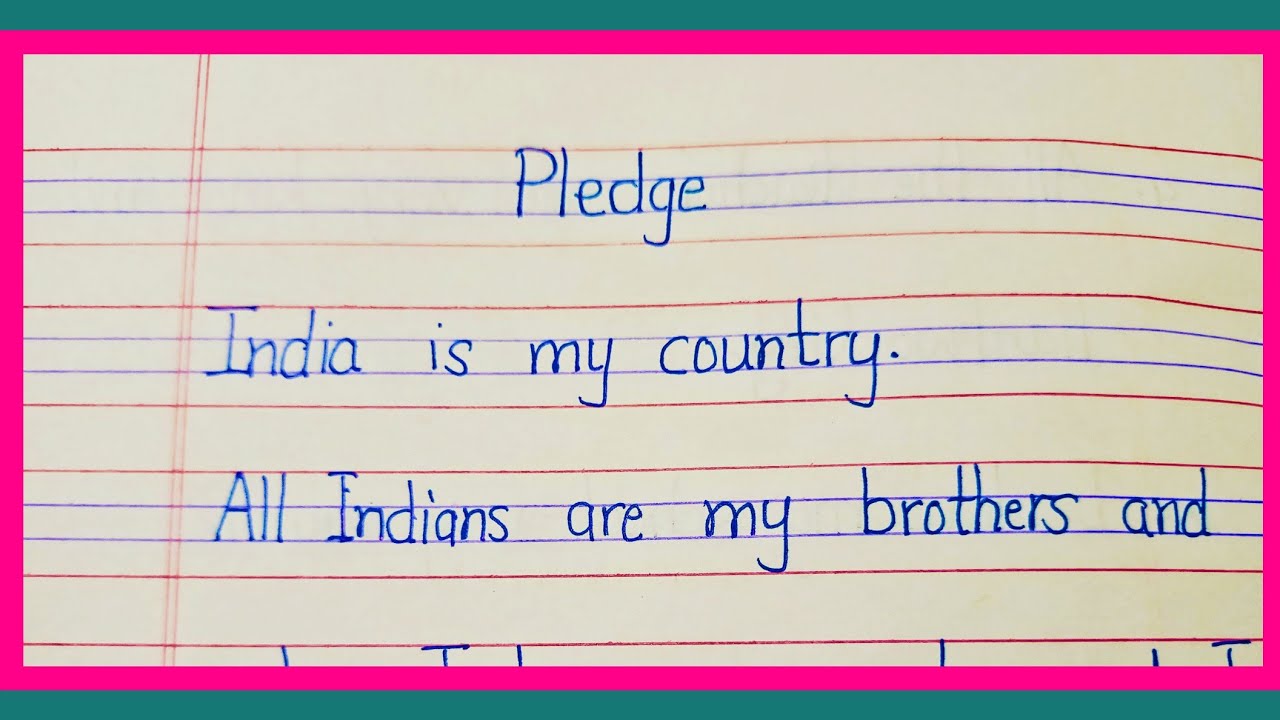 Pledge
India is my country.
All Indians are my brothers and